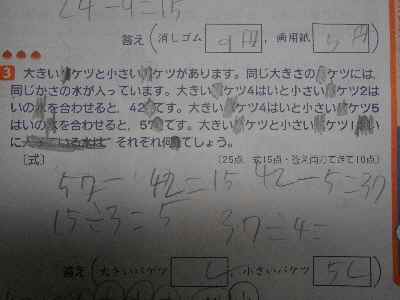 24-9=15
答え(消しゴム 9円, 画用紙 5円)
3 大きいバケツと小さいバケツがあります。同じ大きさのバケツには,
同じかさの水が入っています。大きいバケツ4はいと小さいバケツ2は
いの水を合わせると, 42です。大きいバケツ4はいと小さいバケツ5
はいの水を合わせると, 57です。大きいバケツと小さいバケツ1ぱい
に入っている水は それぞれ何でしょう。
〔式〕 〔25点 式15点・答え両方できて10点〕
57-42=15 42-5=37
15÷3=5 37÷4=
答え(大きいバケツ L, 小さいバケツ 5L